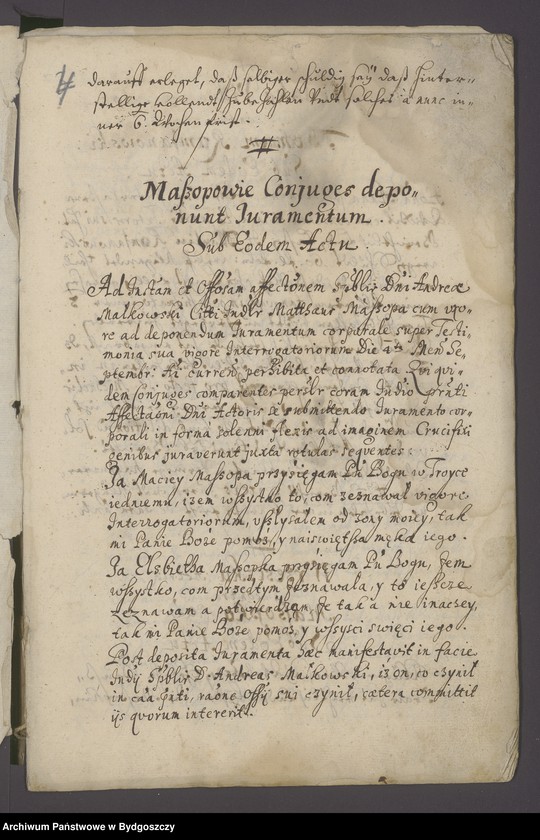 4
darauff erleget, daß selbiger schuldig sey daß hinter=
stellige
6. Wochen frist.
Maßopowie Conjuges depo"
nunt Iuramentum.
Sub Eodem Actu.
Ad Instan et Offosam affectõnem Spblis Dni Andreæ
Malkowski Citti Indtr Matthæus Maßopa cum uxo"
re ad deponendum Iuramentum corporale super Testi"
monia sua vigore Interrogatoriorum Die 4tâ Mens Se"
ptembr: Ai curren, perhibita et connotata Qvi qvi"
dem Conjuges comparentes persltr coram Indio
Affectãõni Dni Actoris se submittendo Iuramento cor"
porali in forma solenni flexis ad imaginem Crucifixi
genibus juraverunt juxta rotulas seqventes:
Ja Maciey Massopa przysięgam Pu Bogu w Troycę
iedniemu, izem wssystko to, com zeznawał vigore
Interrogatoriorum, usłyssałem od zony moiey, tak
mi Panie Boze pomos, y naiswiętssa męka iego.
Ja Elsbietha Massopka przysięgam Pu Bogu, zem
wssystko, com przedtym zeznawała, y to iessce
zeznawam a potwierdzam, ze tak a nie inaczey,
tak mi Panie Boze pomos, y wssysci swięci iego.
Post deposita Iuramenta hæc manifestavit in facie
Indÿ Spblis D. Andreas Malkowski, iz on, co czynił
in cãã pnti, raõne Offÿ sui czynił, cætera committit
ijs qvorum intererit.
Archiwum Państwowe w Bydgoszczy